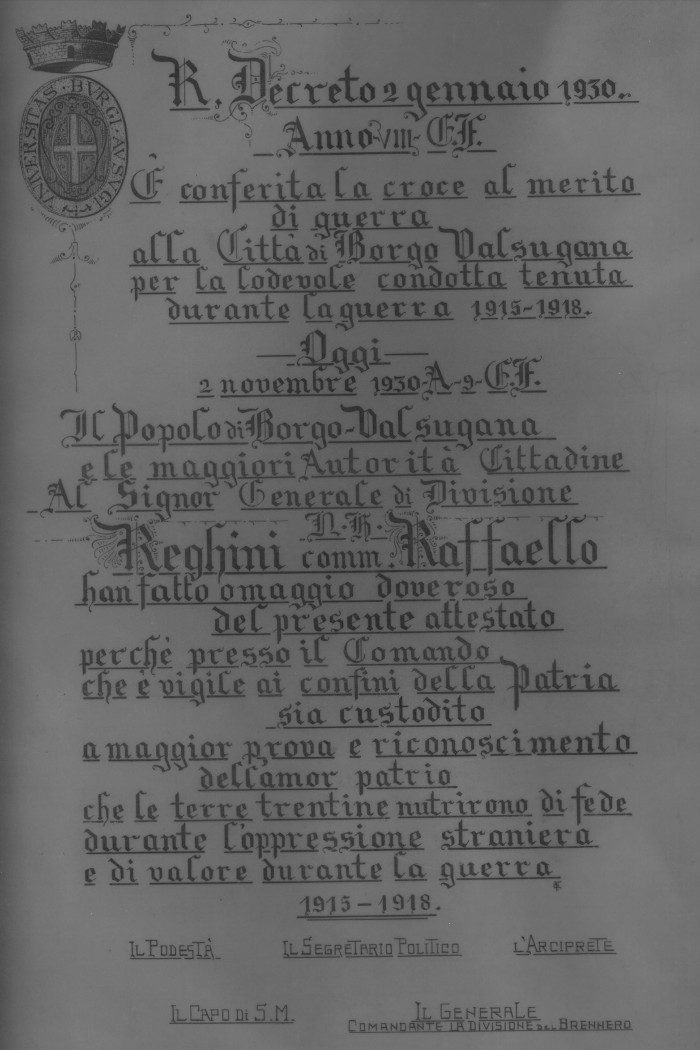 VNIVERSITAS · BVRGI · AVSVGI
R. Decreto 2 gennaio 1930.
Anno VIII E.F.
È conferita la croce al merito
di guerra
alla Città di Borgo Valsugana
per la lodevole condotta tenuta
durante la guerra 1915-1918.
Oggi
2 novembre 1930-A-9-E.F.
Il Popolo di Borgo-Valsugana
e le maggiori Autorità Cittadine
Al Signor Generale di Divisione
N.H.
Reghini comm. Raffaello
han fatto omaggio doveroso
del presente attestato
perchè presso il Comando
che è vigile ai confini della Patria
sia custodito
a maggior prova e riconoscimento
dell'amor patrio
che le terre trentine nutrirono di fede
durante l'oppressione straniera
e di valore durante la guerra
1915-1918.
IL PODESTÀ IL SEGRETARIO POLITICO L'ARCIPRETE
IL CAPO DI S.M. IL GENERALE
COMANDANTE LA DIVISIONE DEL BRENNERO